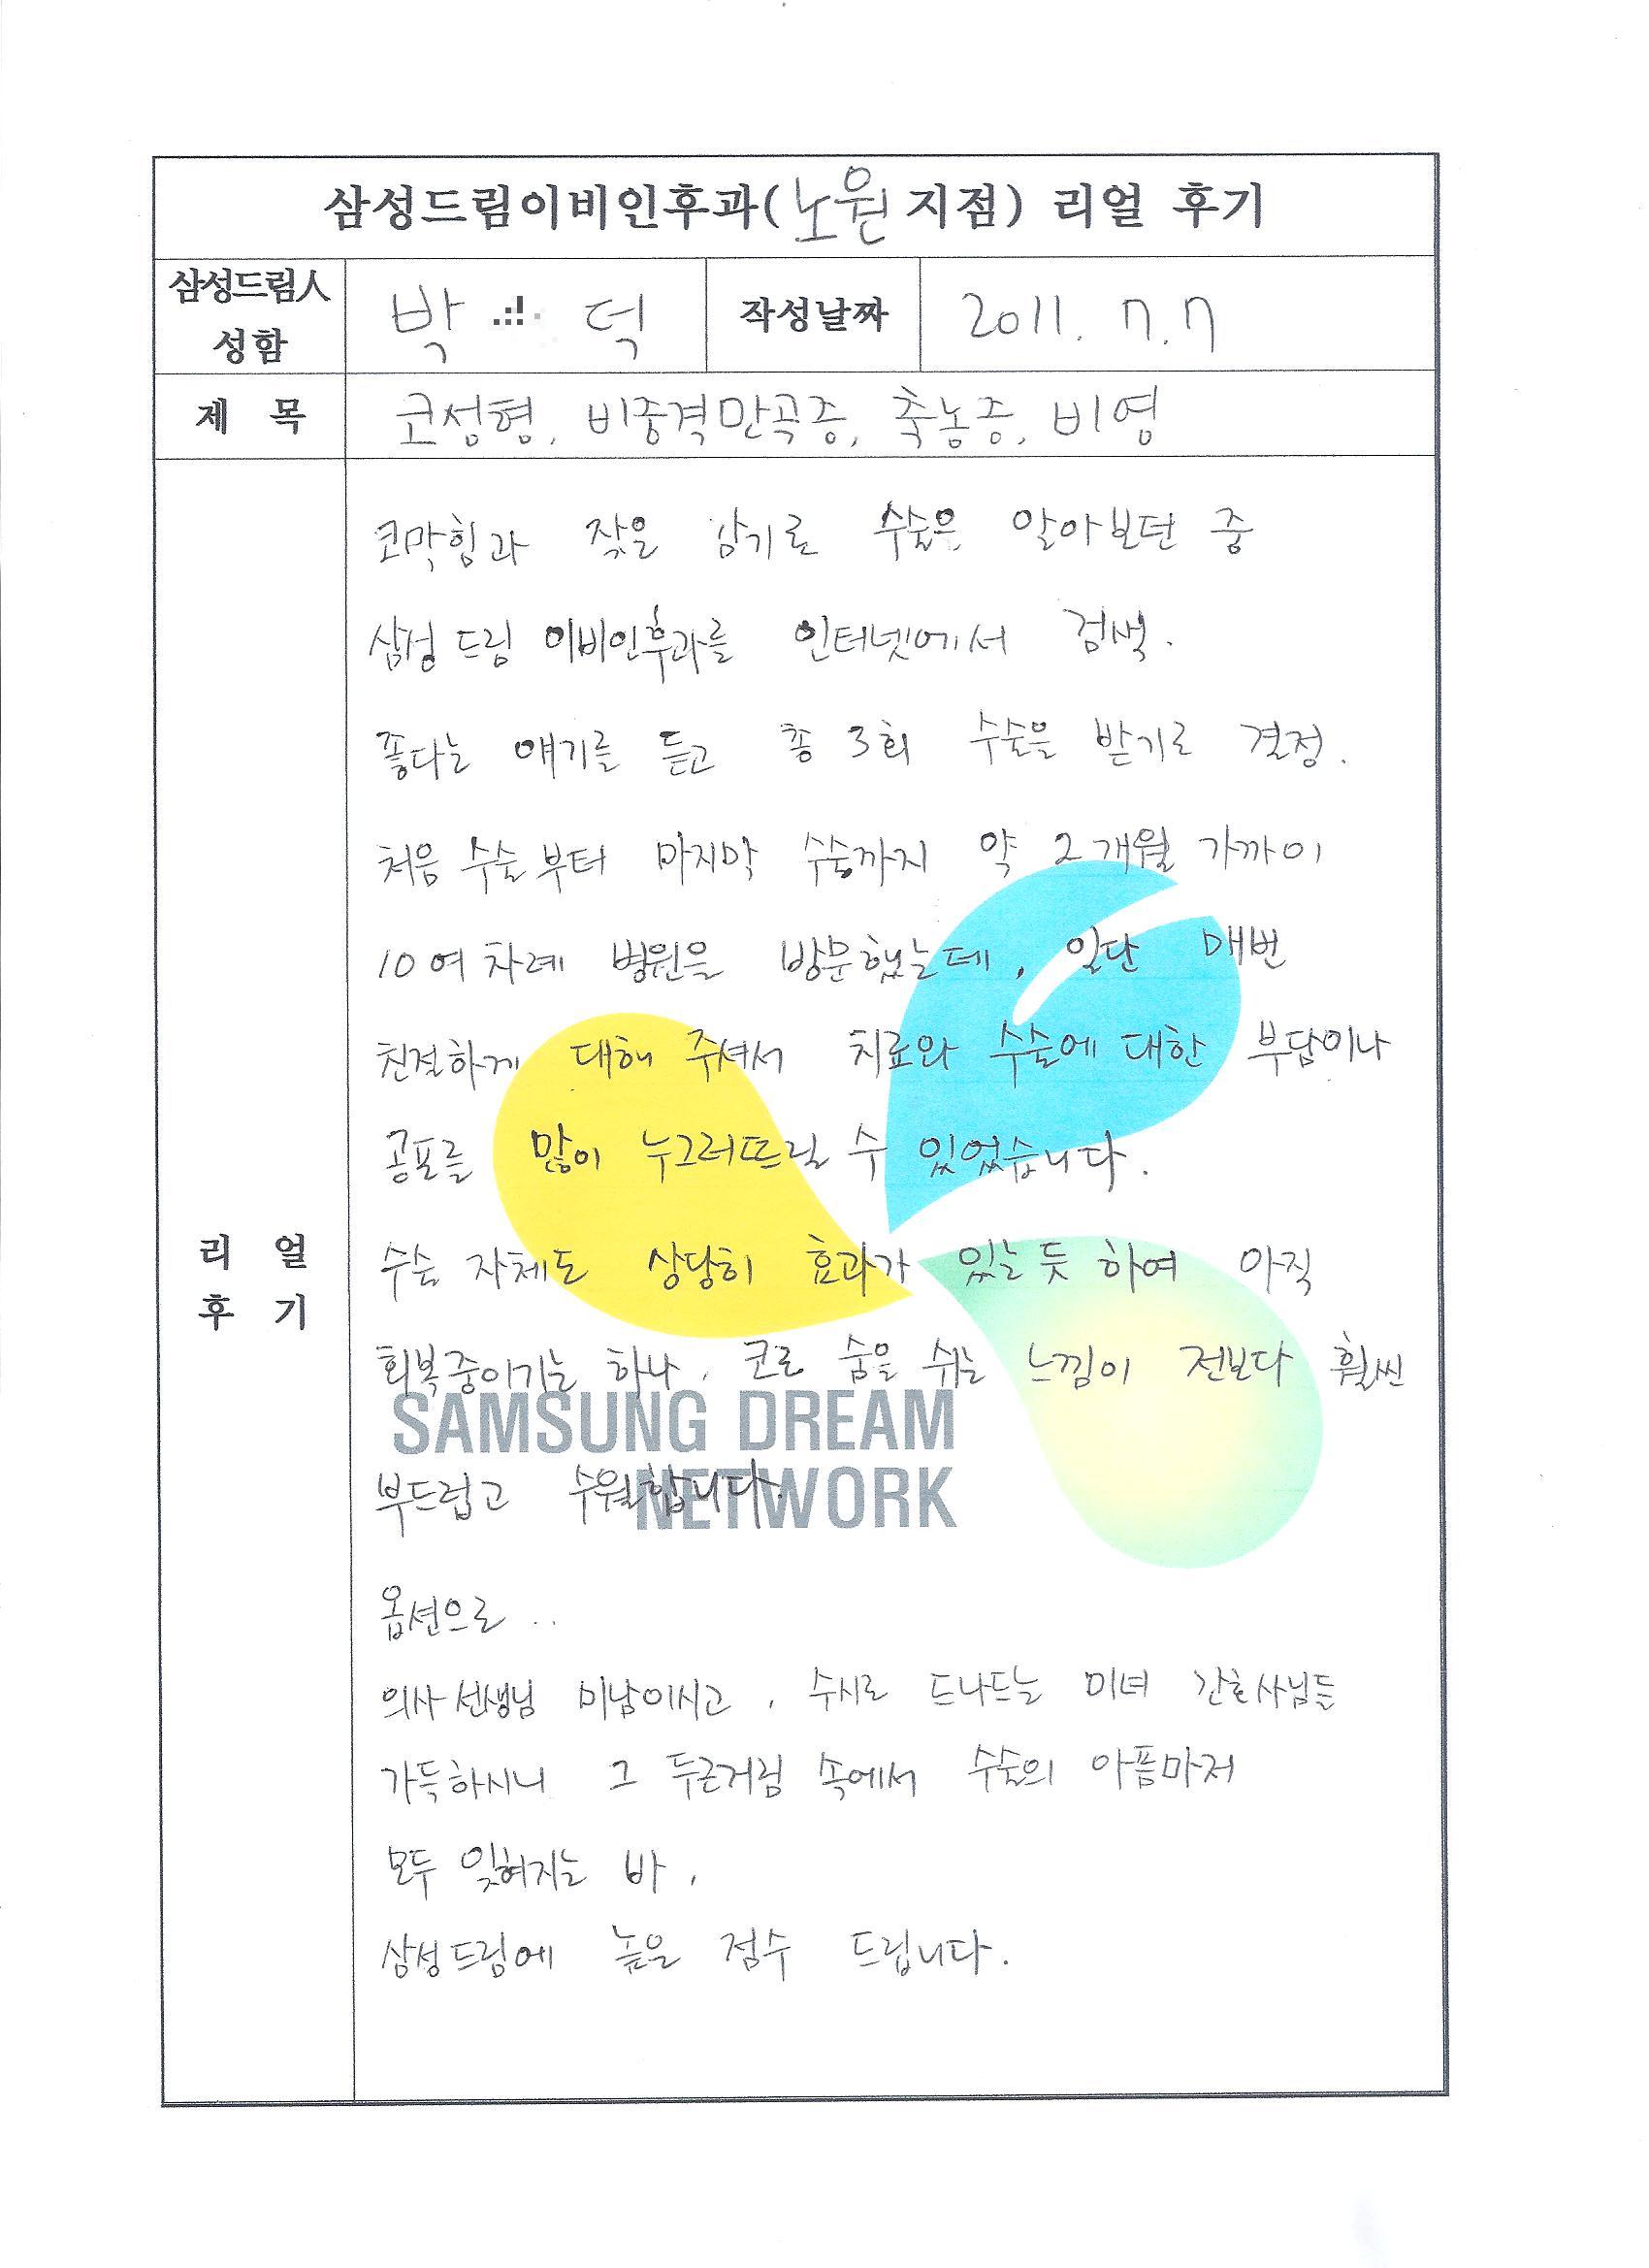 삼성드림이비인후과(노원 지점) 리얼 후기
삼성드림人 성함
박 덕
작성날짜
2011. 7. 7
제 목
코성형, 비중격만곡증, 축농증, 비염
리 얼
후 기
코막힘과 잦은 감기로 수술을 알아보던 중
삼성 드림 이비인후과를 인터넷에서 검색.
좋다는 얘기를 듣고 총 3회 수술을 받기로 결정.
처음 수술부터 마지막 수술까지 약 2개월 가까이
10여 차례 병원을 방문했는데, 일단 매번
친절하게 대해 주셔서 치료와 수술에 대한 부담이나
공포를 많이 누그러뜨릴 수 있었습니다.
수술 자체도 상당히 효과가 있는 듯 하여 아직
회복중이기는 하나, 코로 숨을 쉬는 느낌이 전보다 훨씬
부드럽고 수월합니다.
SAMSUNG DREAM
NETWORK
옵션으로 ..
의사 선생님 미남이시고, 수시로 드나드는 미녀 간호사님들
가득하시니 그 두근거림 속에서 수술의 아픔마저
모두 잊혀지는 바,
삼성드림에 높은 점수 드립니다.